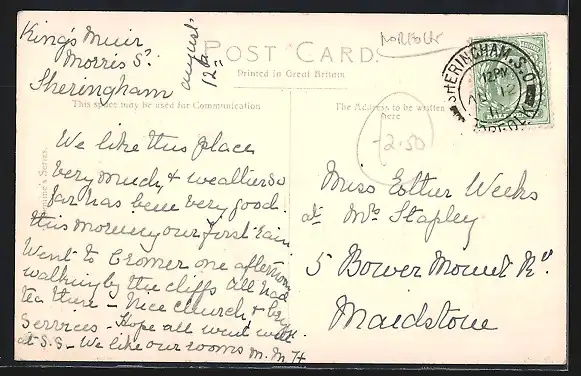 King's Muir
Morris St
Sheringham
August
12th
NORFOLK
POST CARD.
Printed in Great Britain
This space may be used for Communication
The Address to be written
here
SHERINGHAM. S.O
12 PM
AU 12
NORFOLK
2.50
We like this place
very much & weather so
far has been very good.
this morning our first rain
Went to Cromer one afternoon
walking by the cliffs all had
tea there - Nice church & bright
Services - Hope all went well
at S.S. - We like our rooms M.M.H
Miss Esther Weeks
at Mrs Stapley
5 Bower Mount Rd.
Maidstone
Series.